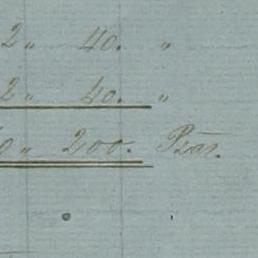 2 " 40. "
2 " 40. "
0 " 200.